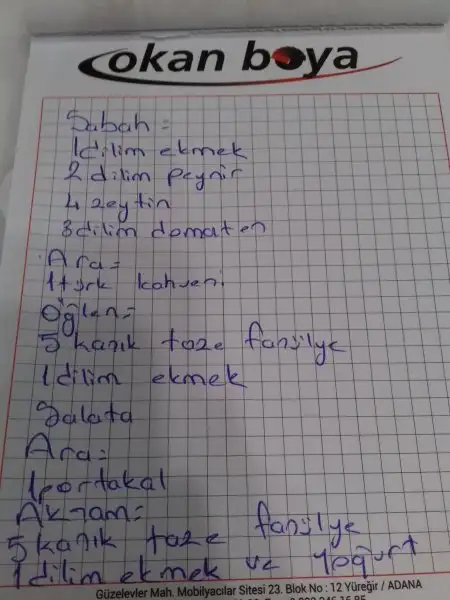 okan boya
Sabah =
1 dilim ekmek
2 dilim peynir
4 zeytin
3 dilim domates
Ara=
1 türk kahvesi
Öğlen=
5 kaşık taze fasülye
1 dilim ekmek
Salata
Ara=
1 portakal
Akşam=
5 kaşık taze fasülye
1 dilim ekmek ve yoğurt
Güzelevler Mah. Mobilyacılar Sitesi 23. Blok No : 12 Yüreğir / ADANA